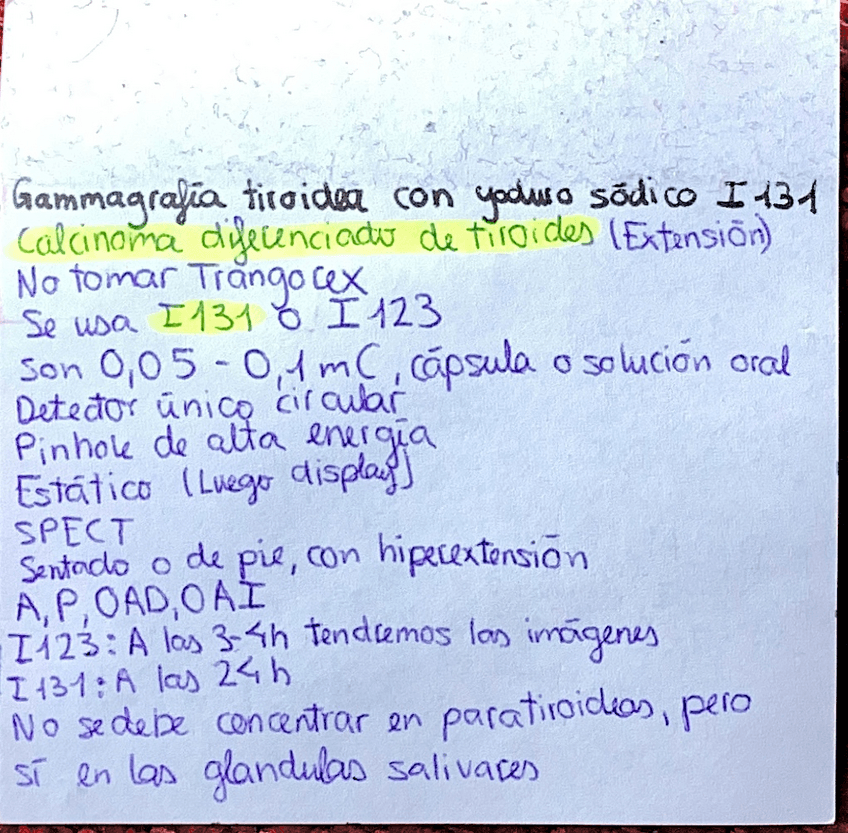 Gammagrafía tiroidea con yoduro sódico I131
Calcinoma diferenciado de tiroides (Extensión)
No tomar Trangorex
Se usa I131 o I123
Son 0,05 - 0,1 mC, cápsula o solución oral
Detector único circular
Pinhole de alta energía
Estático (Luego display)
SPECT
Sentado o de pie, con hiperextensión
A, P, OAD, OAI
I123: A las 3-4h tendremos las imágenes
I131: A las 24h
No se debe concentrar en paratiroideas, pero
sí en las glandulas salivares